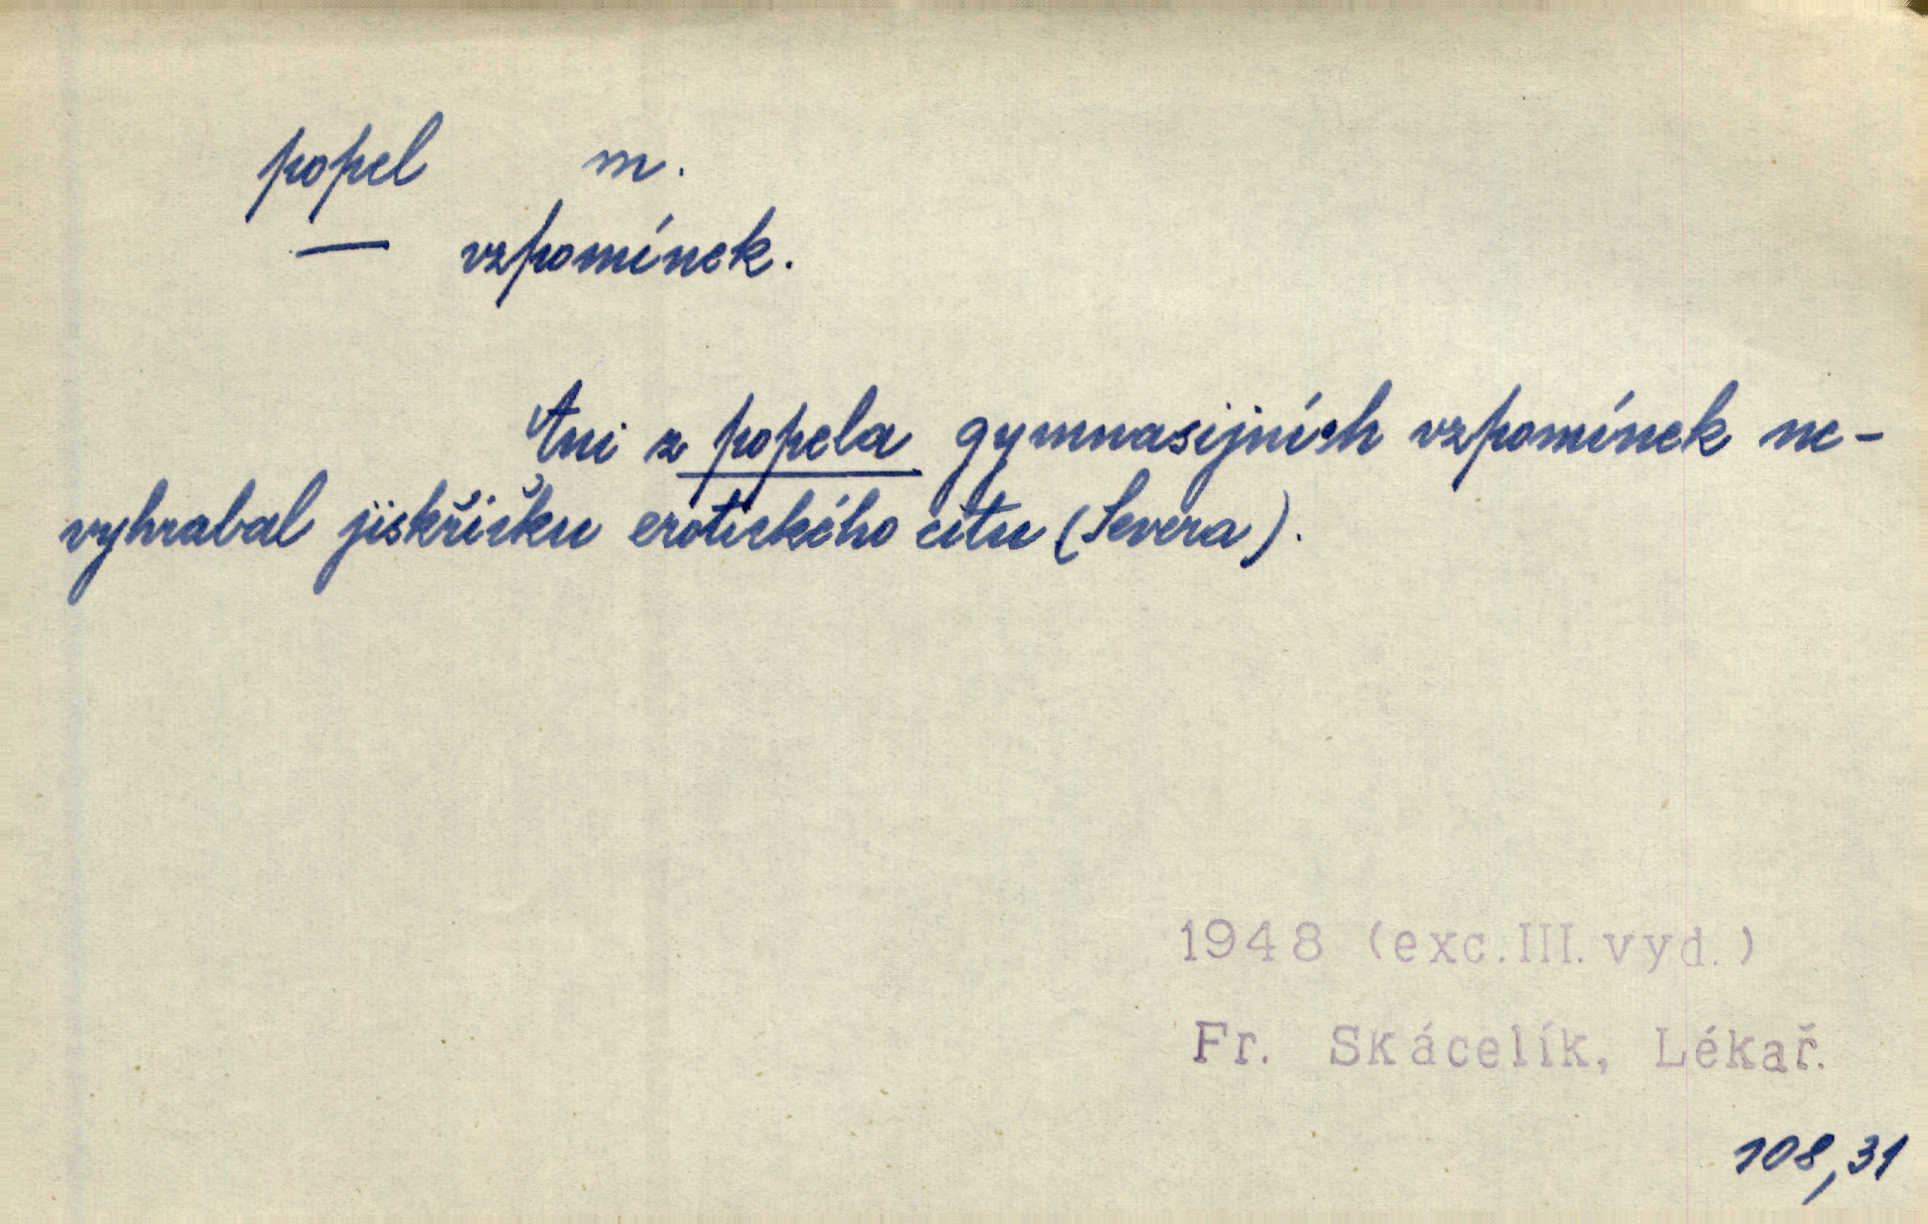 popel m.
— vzpomínek.
Ani z popela gymnasijních vzpomínek ne-
vyhrabal jiskřičku erotického citu (Severa).
1948 (exc. III. vyd.)
Fr. Skácelík, Lékař.
108,31